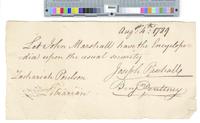 Aug. 4th. 1789
Let John Marshall have the Encyclopœ-
dia upon the usual security
Joseph Paschall
Zachariah Poulson
Librarian